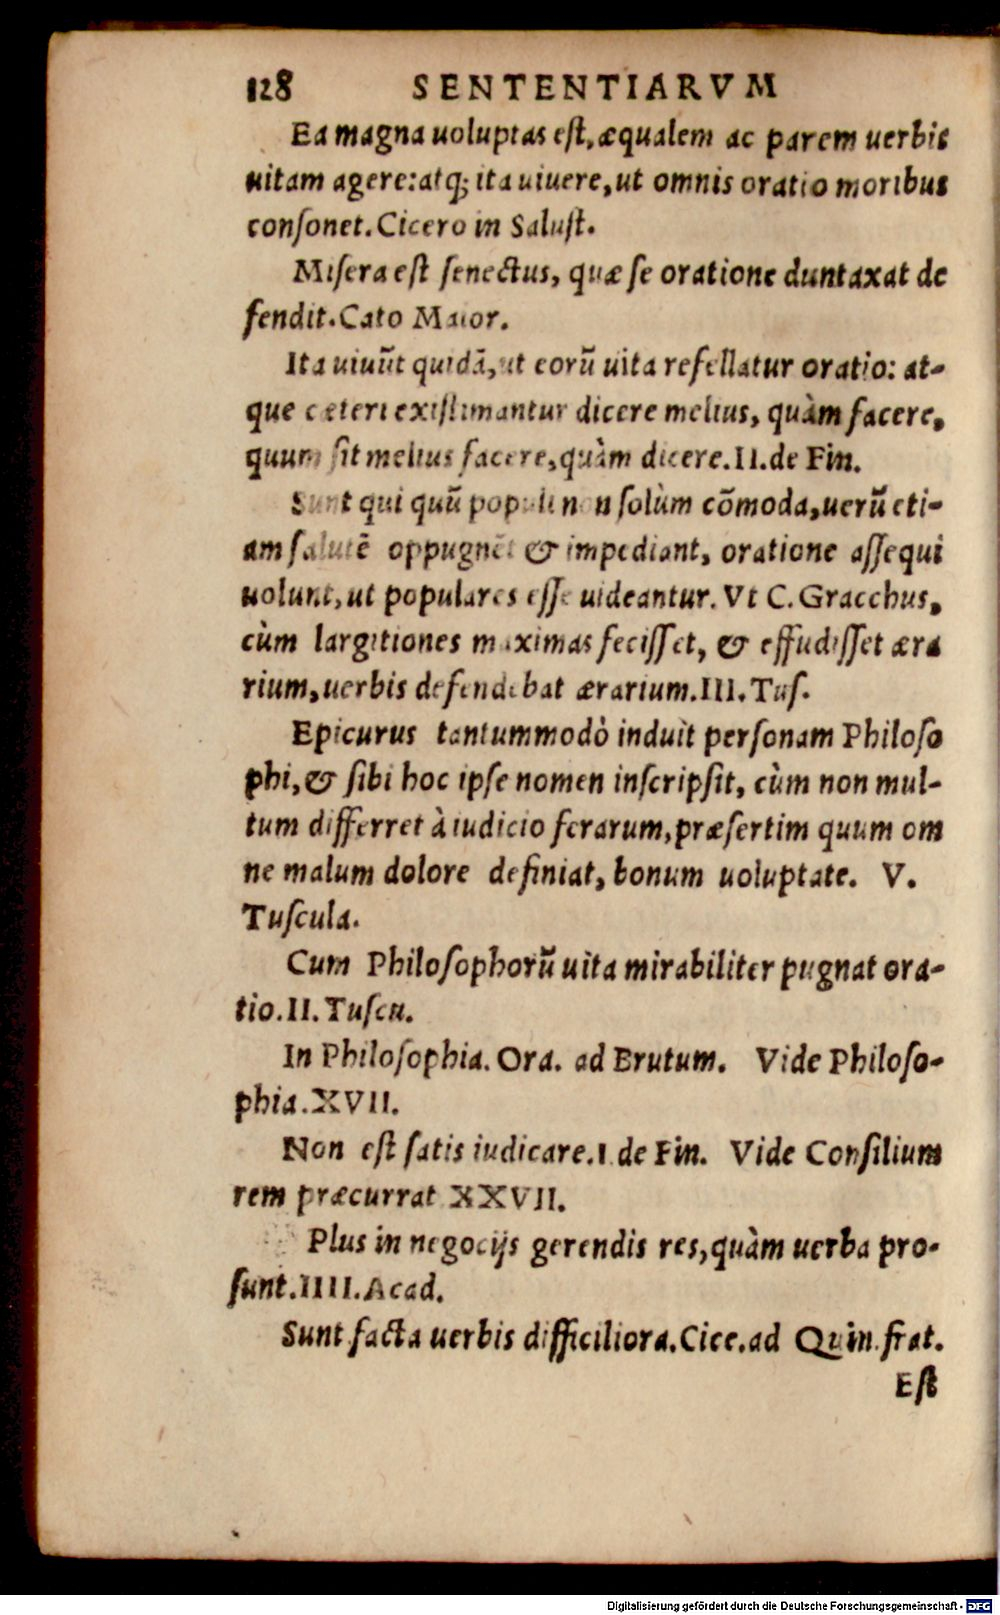 128 SENTENTIARVM
Ea magna uoluptas eſt, æqualem ac parem uerbis
uitam agere: atq; ita uiuere, ut omnis oratio moribus
conſonet. Cicero in Saluſt.
Miſera eſt ſenectus, quæ ſe oratione duntaxat de
fendit. Cato Maior.
Ita uiuũt quidã, ut eorũ uita refellatur oratio: at-
que cæteri exiſtimantur dicere melius, quàm facere,
quum ſit melius facere, quàm dicere. II. de Fin.
Sunt qui quũ populi non ſolùm cõmoda, uerũ eti-
am ſalutẽ oppugnẽt & impediant, oratione aſſequi
uolunt, ut populares eſſe uideantur. Vt C. Gracchus,
cùm largitiones maximas feciſſet, & effudiſſet æra
rium, uerbis defendebat ærarium. III. Tuſ.
Epicurus tantummodò induit perſonam Philoſo
phi, & ſibi hoc ipſe nomen inſcripſit, cùm non mul-
tum differret à iudicio ferarum, præſertim quum om
ne malum dolore definiat, bonum uoluptate. V.
Tuſcula.
Cum Philoſophorũ uita mirabiliter pugnat ora-
tio. II. Tuſcu.
In Philoſophia. Ora. ad Brutum. Vide Philoſo-
phia. XVII.
Non eſt ſatis iudicare. I. de Fin. Vide Conſilium
rem præcurrat XXVII.
Plus in negocijs gerendis res, quàm uerba pro-
ſunt. IIII. Acad.
Sunt facta uerbis difficiliora. Cice. ad Quin. frat.
Eſt
Digitalisierung gefördert durch die Deutsche Forschungsgemeinschaft - DFG